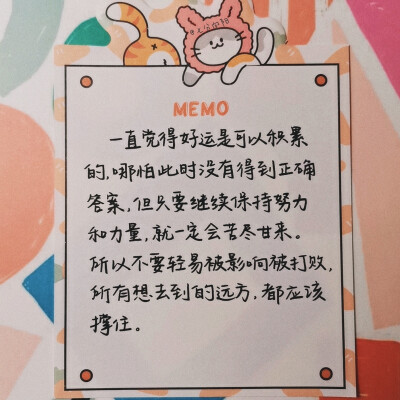 MEMO
一直觉得好运是可以积累
的,哪怕此时没有得到正确
答案,但只要继续保持努力
和力量,就一定会苦尽甘来。
所以不要轻易被影响被打败,
所有想去到的远方,都应该
撑住。